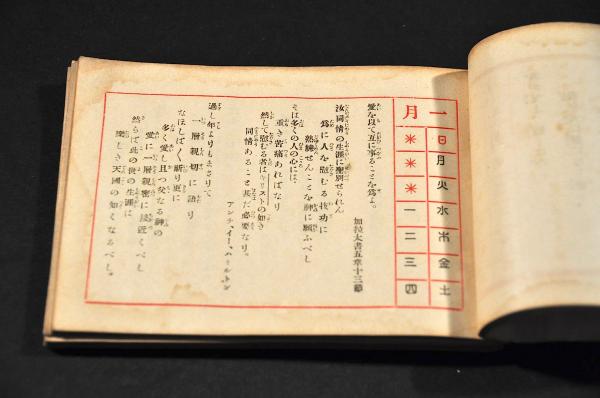 一月
日月火水木金土
＊＊＊一二三四
愛を以て互に事ることを爲よ。
加拉太書五章十三節
汝同情の生涯に聖別せられん
爲に人を慰むる技功に
熟練せんことを神に願ふべし
そは多くの人の心には
重き苦痛あればなり
然して慰むる者はキリストの如き
同情あること甚だ必要なり。
アンナ、イー、ハミルトン
過し年よりもまさりて
一層親切に語り
なほしばしば祈り更に
多く愛し且つ父なる神の
愛に一層親密に接近くべし
然らば此の世の生涯は
樂しき天國の如くなるべし。